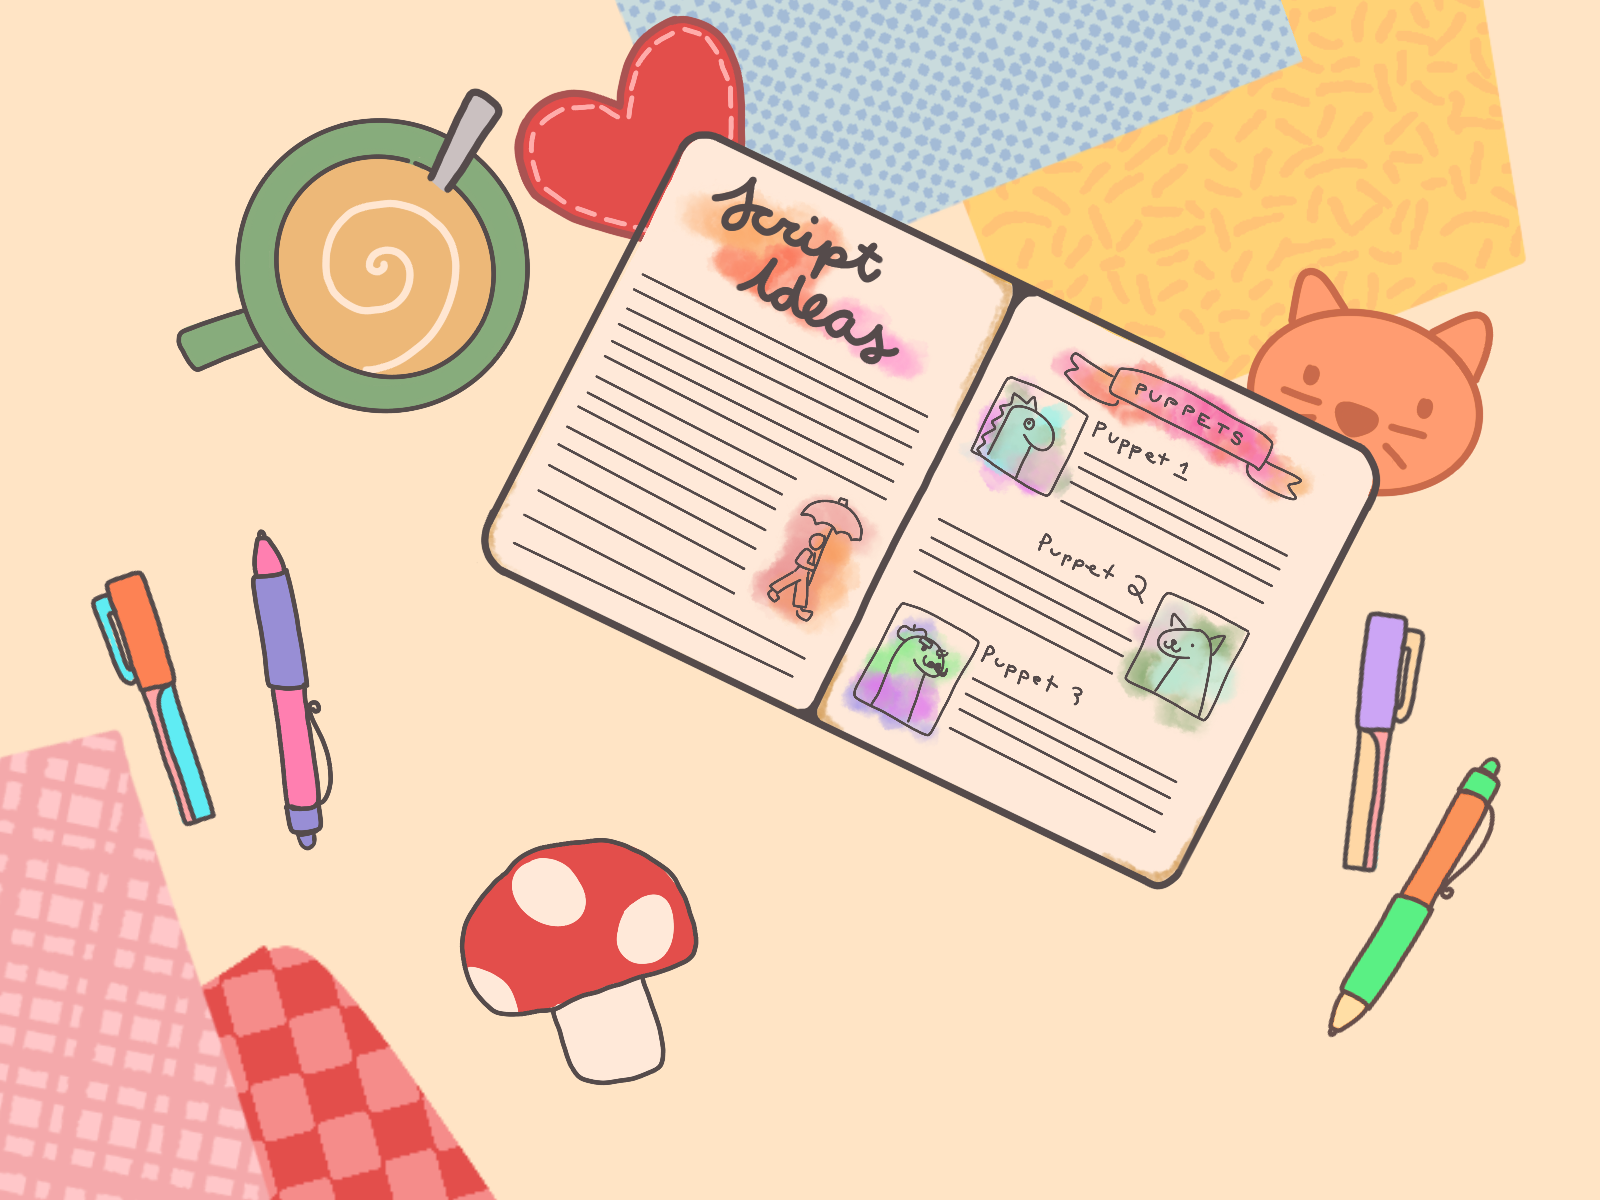 Script
Ideas
PUPPETS
Puppet 1
Puppet 2
Puppet 3